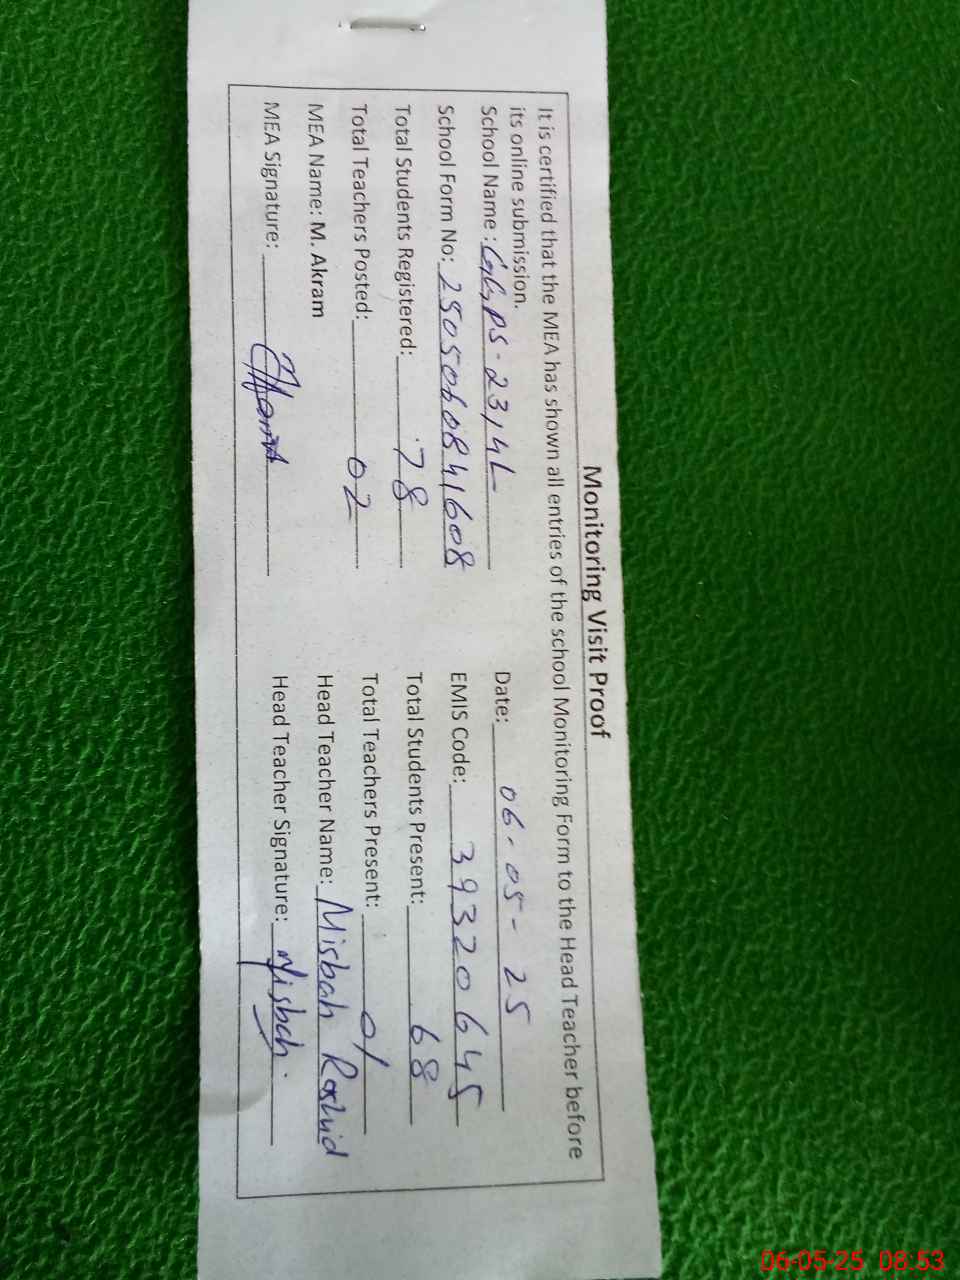 Monitoring Visit Proof
It is certified that the MEA has shown all entries of the school Monitoring Form to the Head Teacher before
its online submission.
School Name : GGPS-23/4L Date: 06-05-25
School Form No: 2505060841608 EMIS Code: 39320645
Total Students Registered: 78 Total Students Present: 68
Total Teachers Posted: 02 Total Teachers Present: 01
MEA Name: M. Akram Head Teacher Name: Misbah Rashid
MEA Signature: Head Teacher Signature: Misbah
06-05-25 08:53